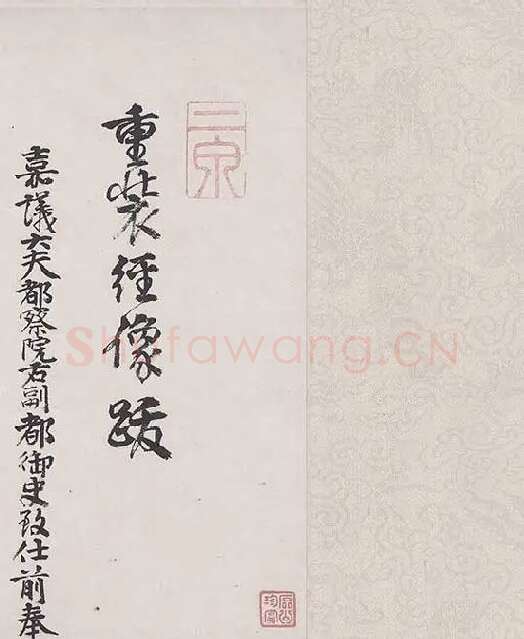 重裝經像跋
嘉議大夫都察院右副都御史致仕前奉
三京
Shufawang.CN